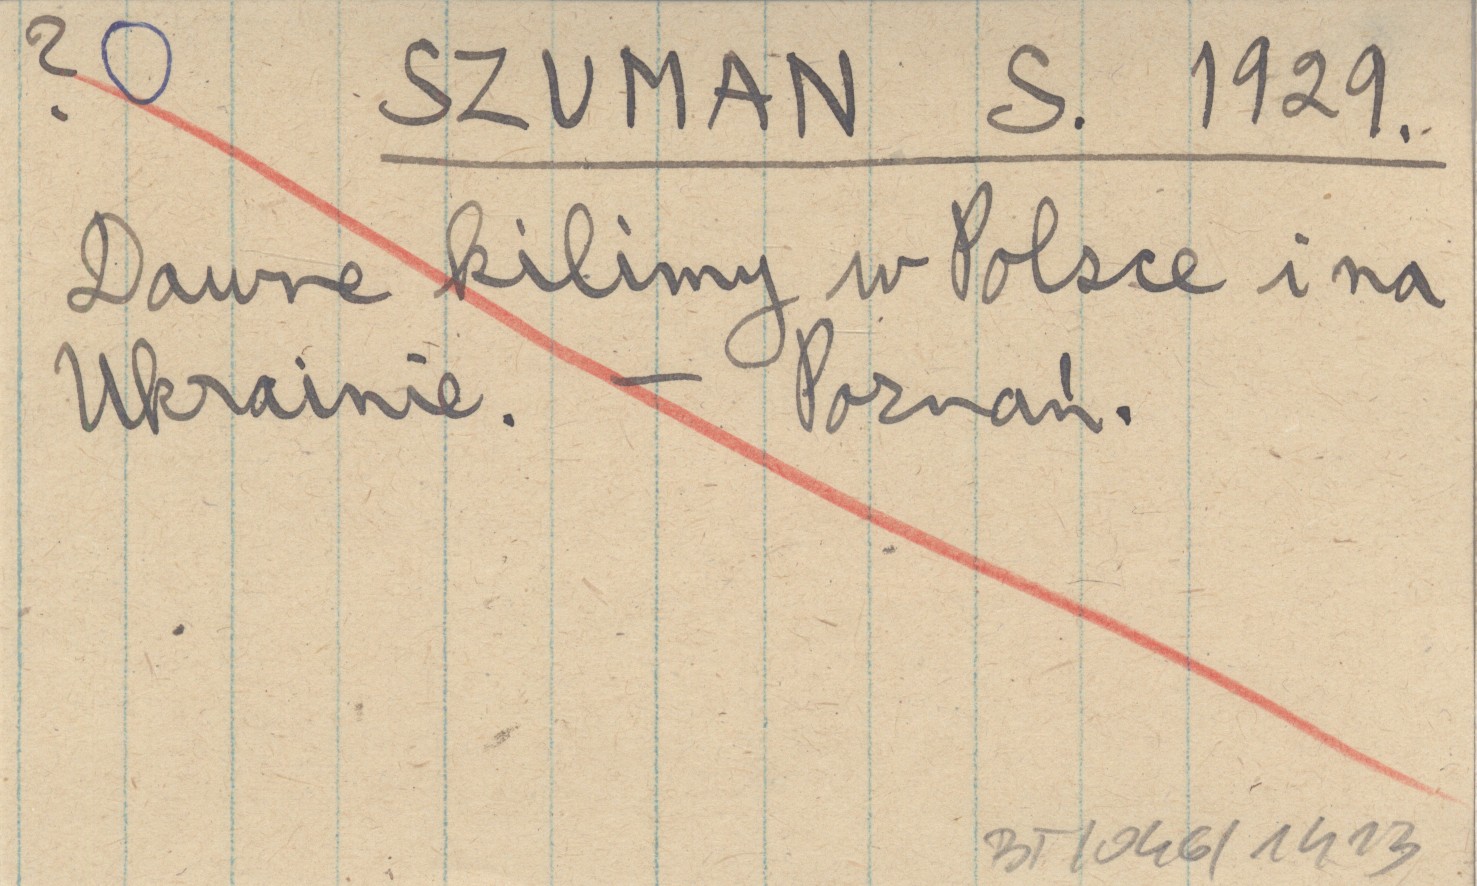 ? O SZUMAN S. 1929.
Dawne kilimy w Polsce i na
Ukrainie. — Poznań.
BT/046/1413